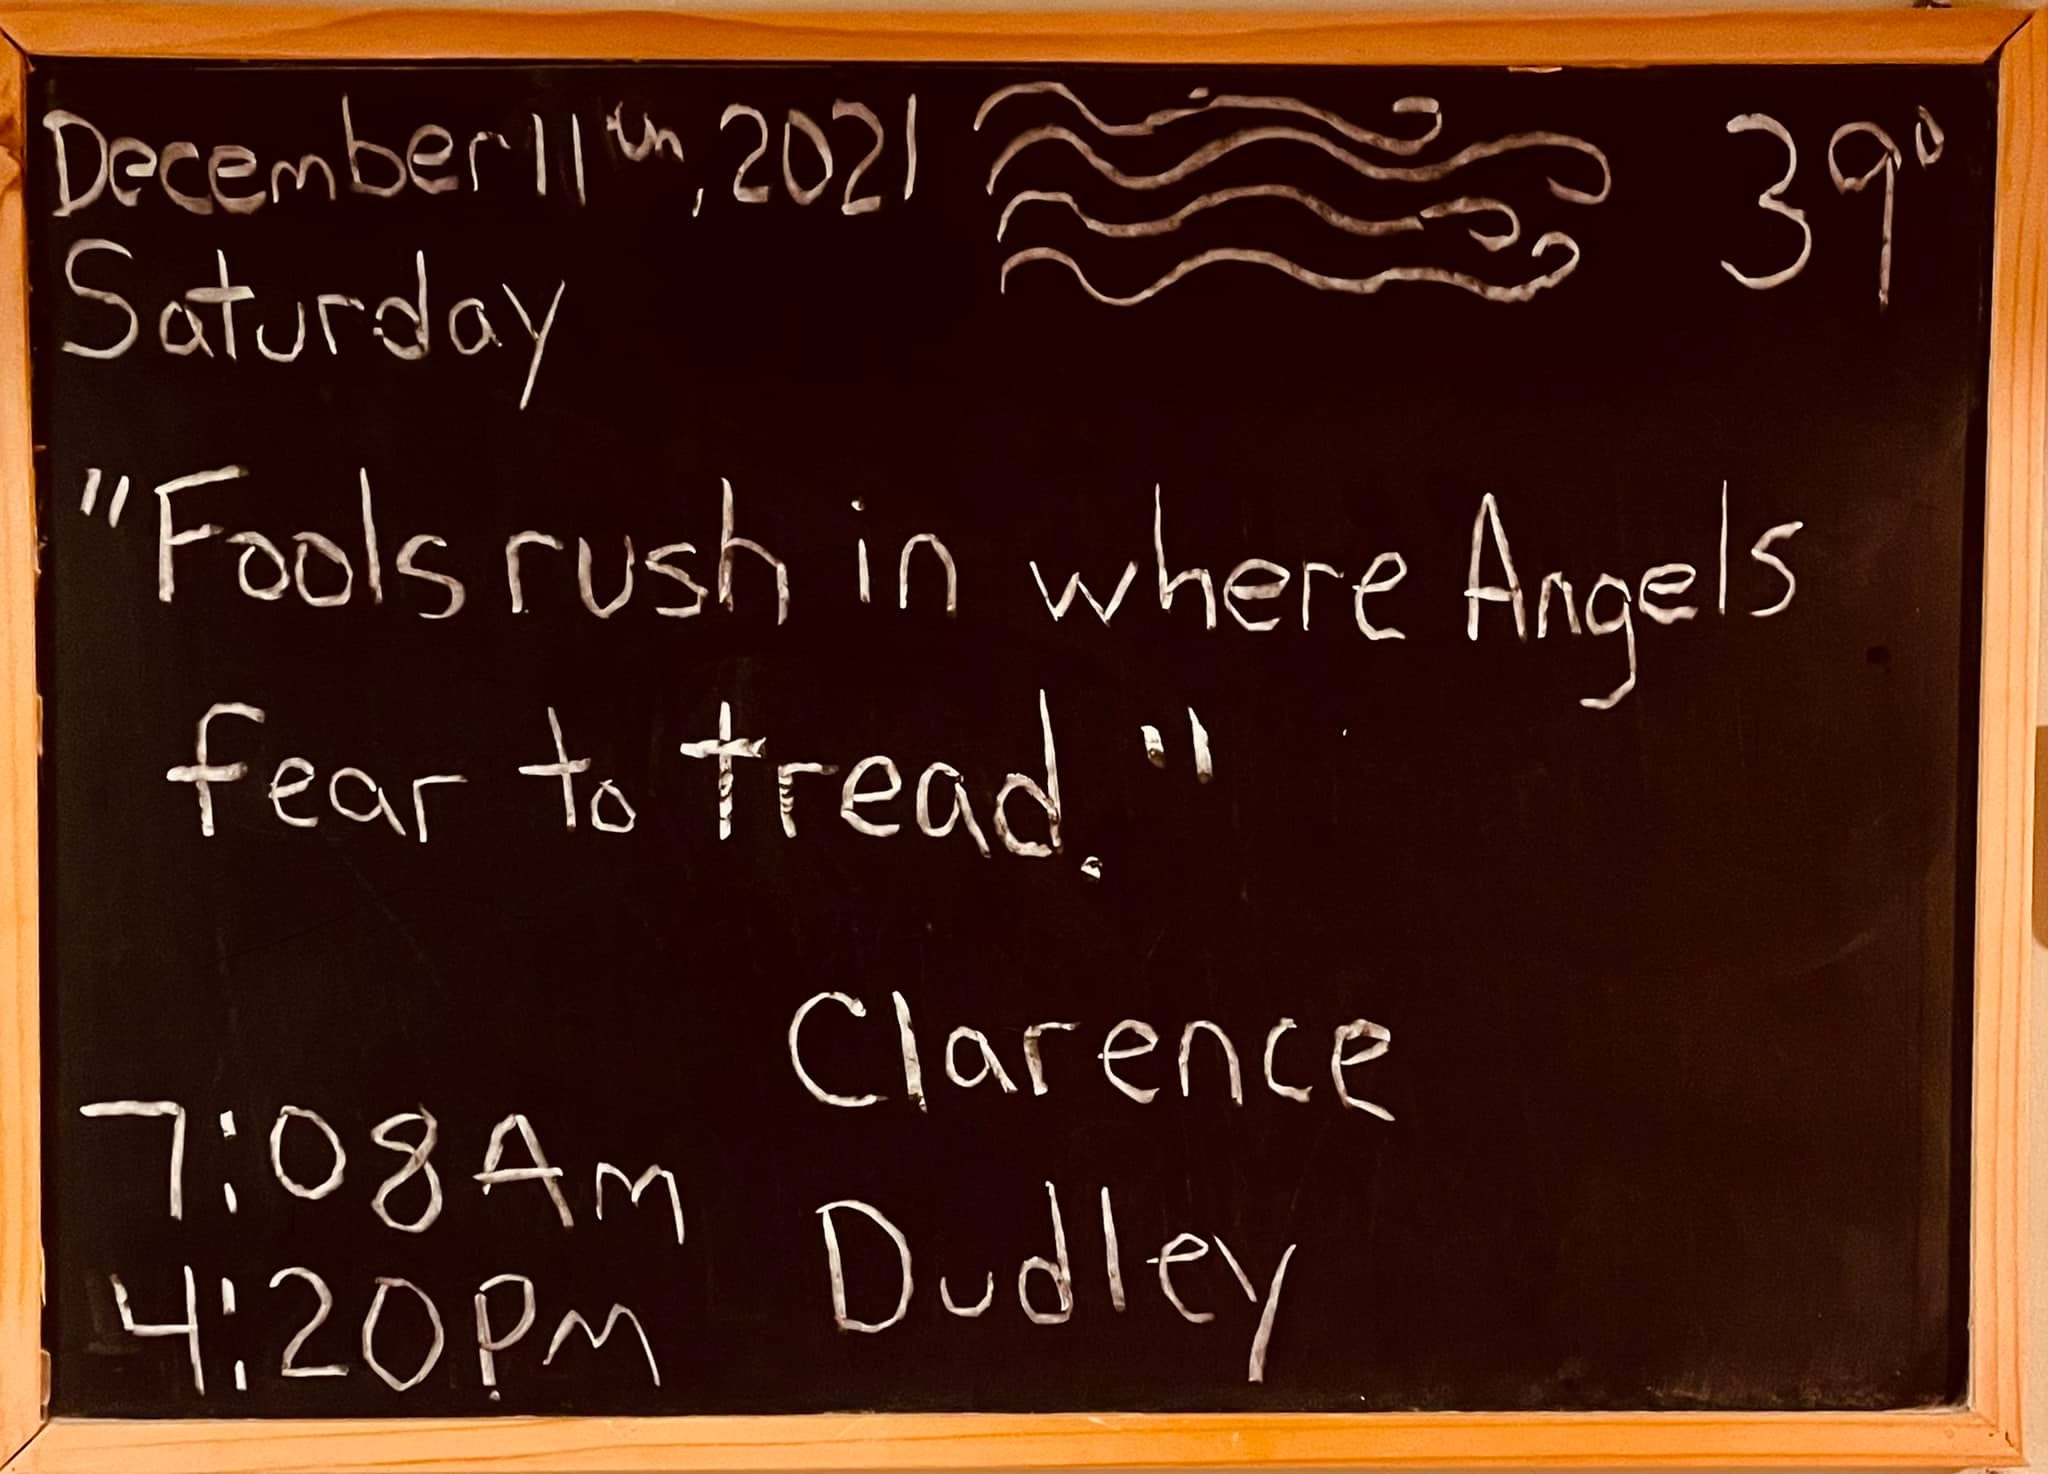 December 11th, 2021
39°
Saturday
"Fools rush in where Angels
fear to tread."
Clarence
Dudley
7:08 AM
4:20 PM